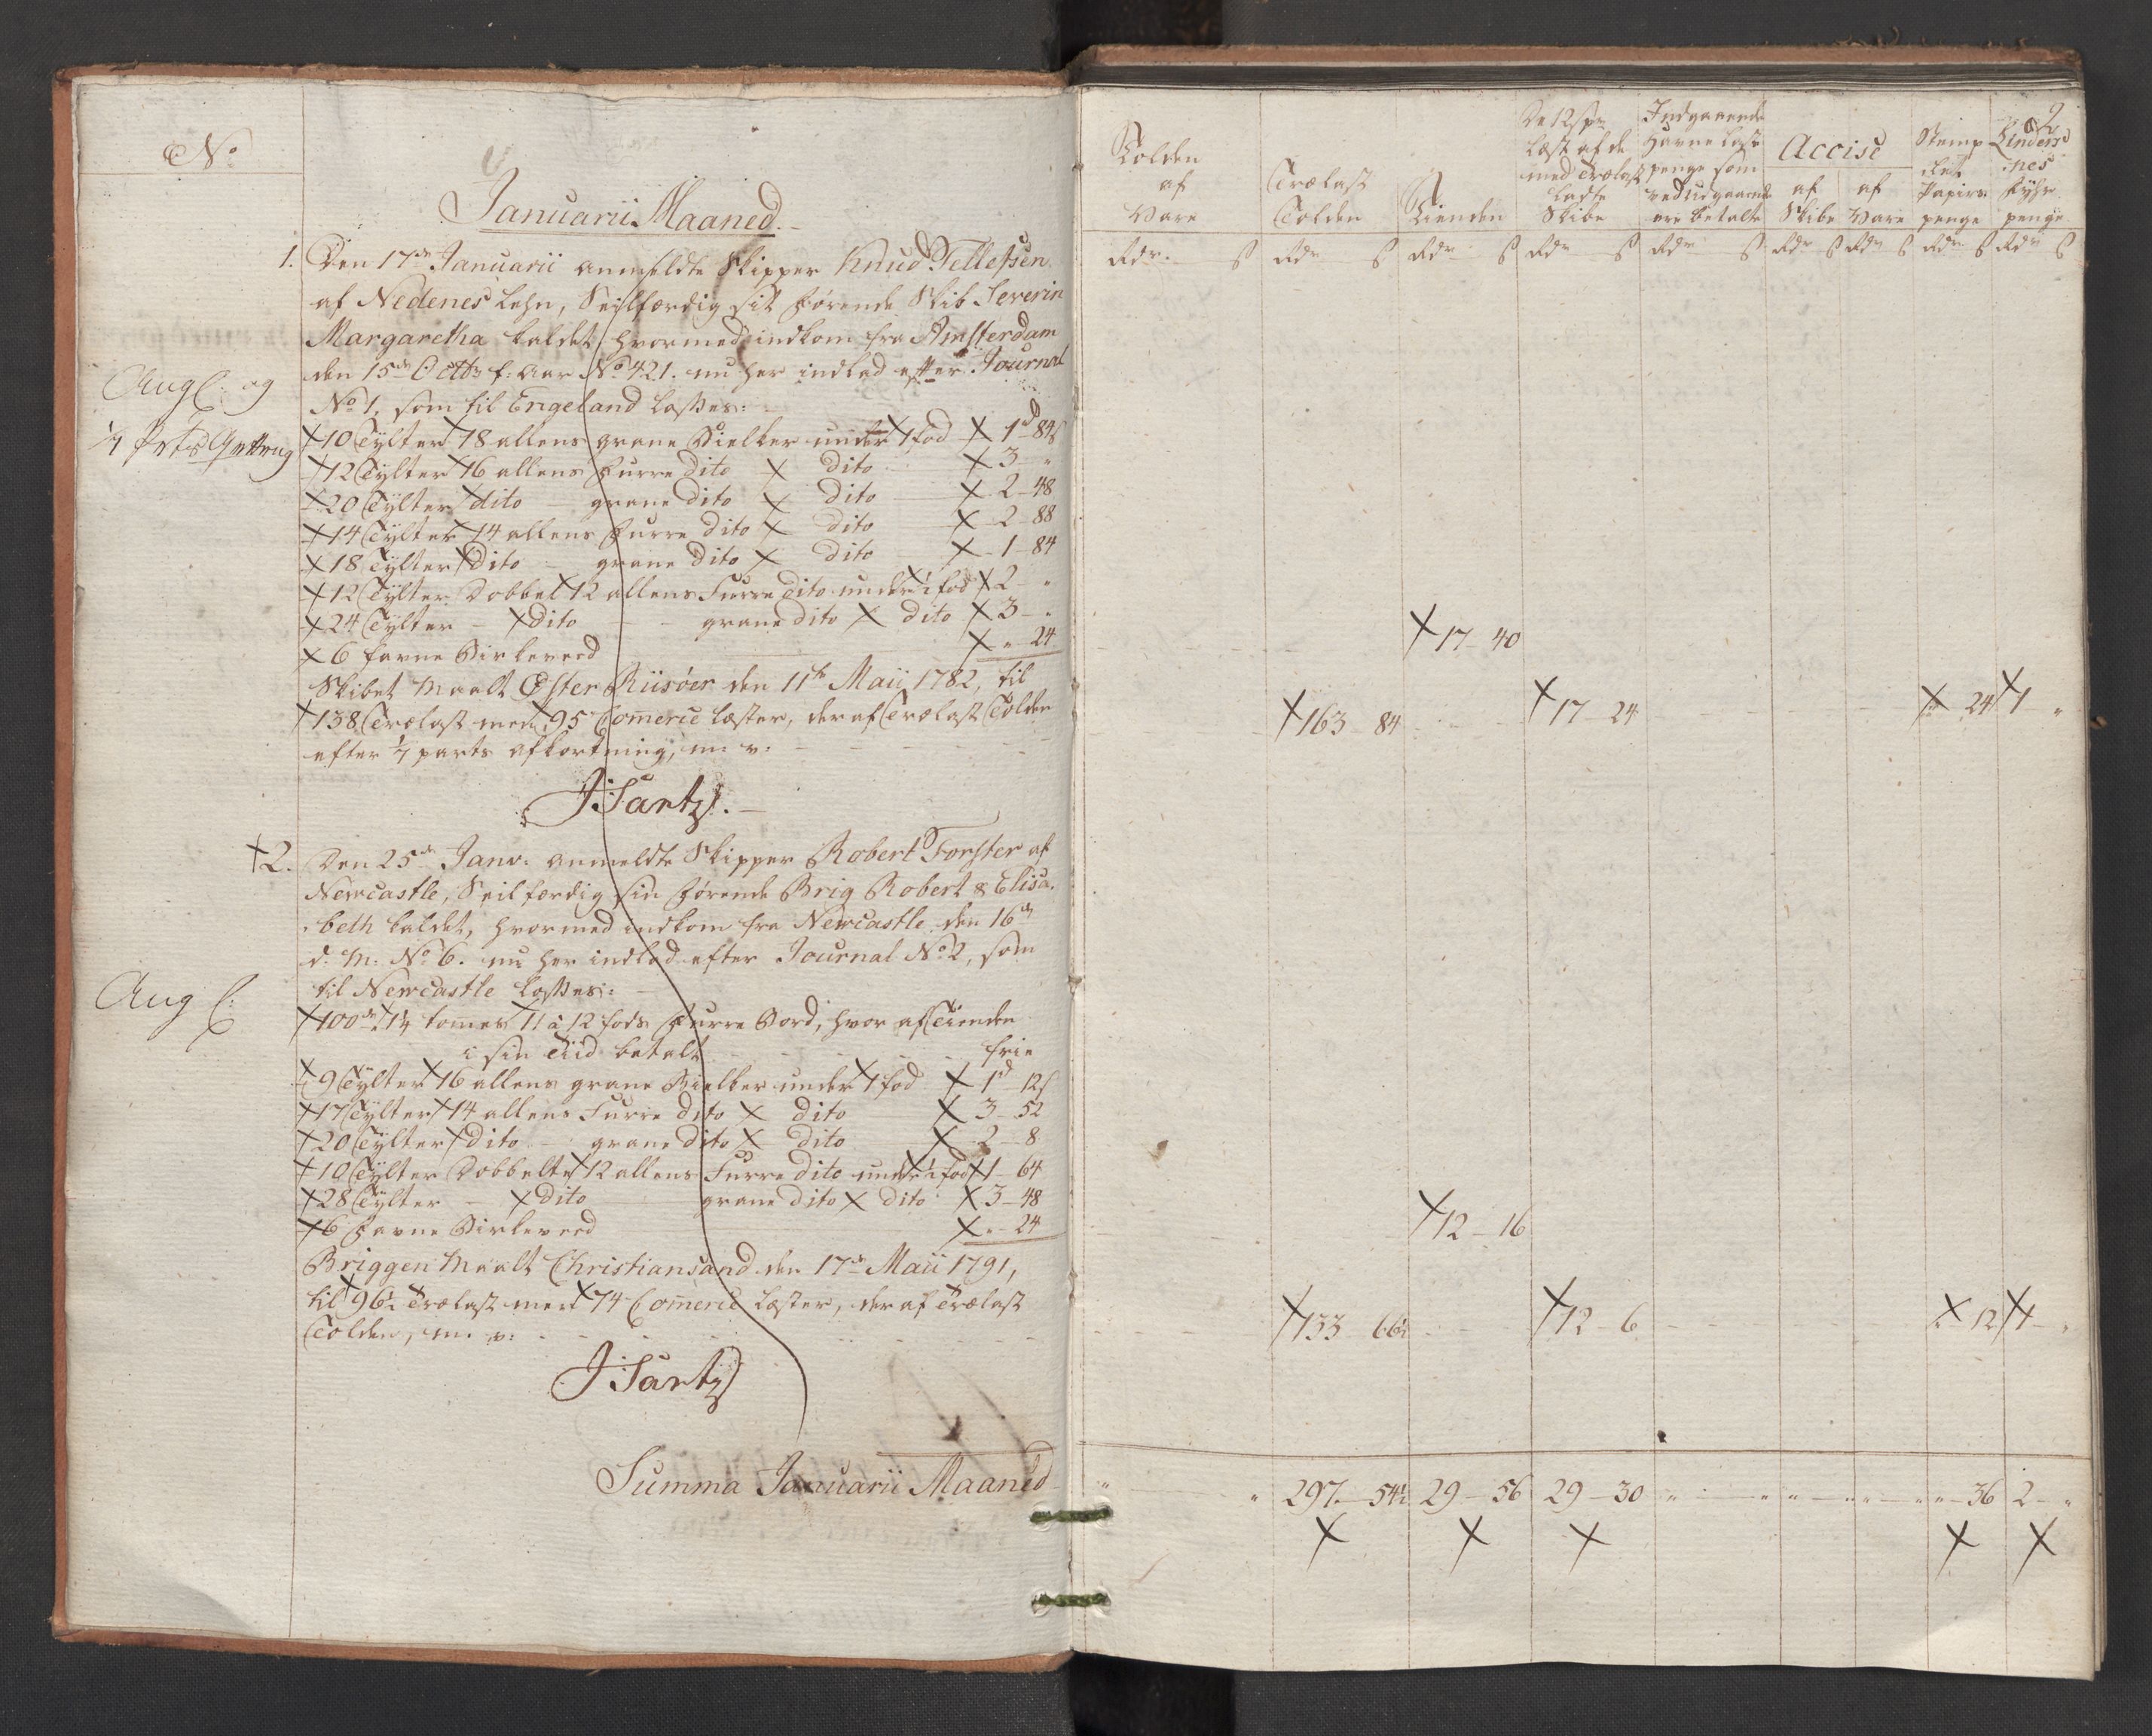 No
Januarii Maaned.
1. Den 17de Januarii anmeldte Skipper Knud Tellefsen
af Nedenes Lehn, Seilfærdig sit førende Skib Severin
Margaretha kaldet, hvormed indkom fra Amsterdam
den 15de Octbr f: Aar No 421. nu her indlad efter Journal
No 1, som til Engeland losses:
Aug C: og
1/7 Parts
+10 Tylter +18 allens grane Bielker under +1 fod + 1d 84s
+12 Tylter +16 allens Furre dito + dito + 3 "
+20 Tylter +dito - grane dito + dito + 2 - 48
+14 Tylter +14 allens Furre dito + dito + 2 - 88
+18 Tylter +dito - grane dito + dito + 1 - 84
+12 Tylter Dobbelt +12 allens Furre dito under +1/2 fod +2 - "
+24 Tylter - +dito - - grane dito + dito +3 - "
+6 favne Birkeveed + " - 24
Skibet maalt Øster Riisöer den 11te Maii 1782, til
+138 Trælast men +95 Comerce læster, der af Trælast Tolden
efter 1/7 parts afkortning, m: v: - - -
J Sartz.
+2. Den 25de Janv: anmeldte Skipper Robert Forster af
Newcastle, Seilfærdig sin førende Brig Robert & Elisa-
beth kaldet, hvormed indkom fra Newcastle den 16de
d: M: No 6. nu her indlad efter Journal No 2, som
til Newcastle losses:
Aug C:
+100de +1 1/4 tommes +11 à 12 fods Furre Bord, hvor af Tienden
i sin Tid betalt - - - frie
+9 Tylter +16 allens grane Bielker under +1 fod + 1d 12s
+17 Tylter +14 allens Furre dito + dito + 3 - 52
+20 Tylter +dito - grane dito + dito + 2 - 8
+10 Tylter Dobbelte +12 allens Furre dito under +1/2 fod +1 - 64
+28 Tylter - +dito grane dito + dito +3 - 48
+6 Favne Birkeveed + " - 24
Briggen maalt Christiansand den 17de Maii 1791,
til +96 1/2 Trælast men +74 Comerce læster, der af Trælast
Tolden, m: v: - - -
J Sartz
Summa Januarii Maaned
2
Tolden
af
Vare
Trælast
Tolden
Tienden
De 12 s pr
Læst af de
med Trælast
ladte
Skibe
Indgaaende
Havne Laste
penge som
ved Udgaaende
ere betalte
Accise
af
Skibe
af
Vare
Stemp
let
Papirs
penge
Linders
nes
Fyhr
penge
Rdr. s Rdr s Rdr s Rdr s Rdr s Rdr s Rdr s Rdr s Rdr s
+17 - 40
+163 - 84 +17 - 24 + " 24 +1 "
+12 - 16
+133 - 66 1/2 +12 - 6 + " - 12 +1 - "
" " 297 - 54 1/2 29 - 56 29 - 30 " - " " - " " - " " - 36 2 - "
+ + + + +